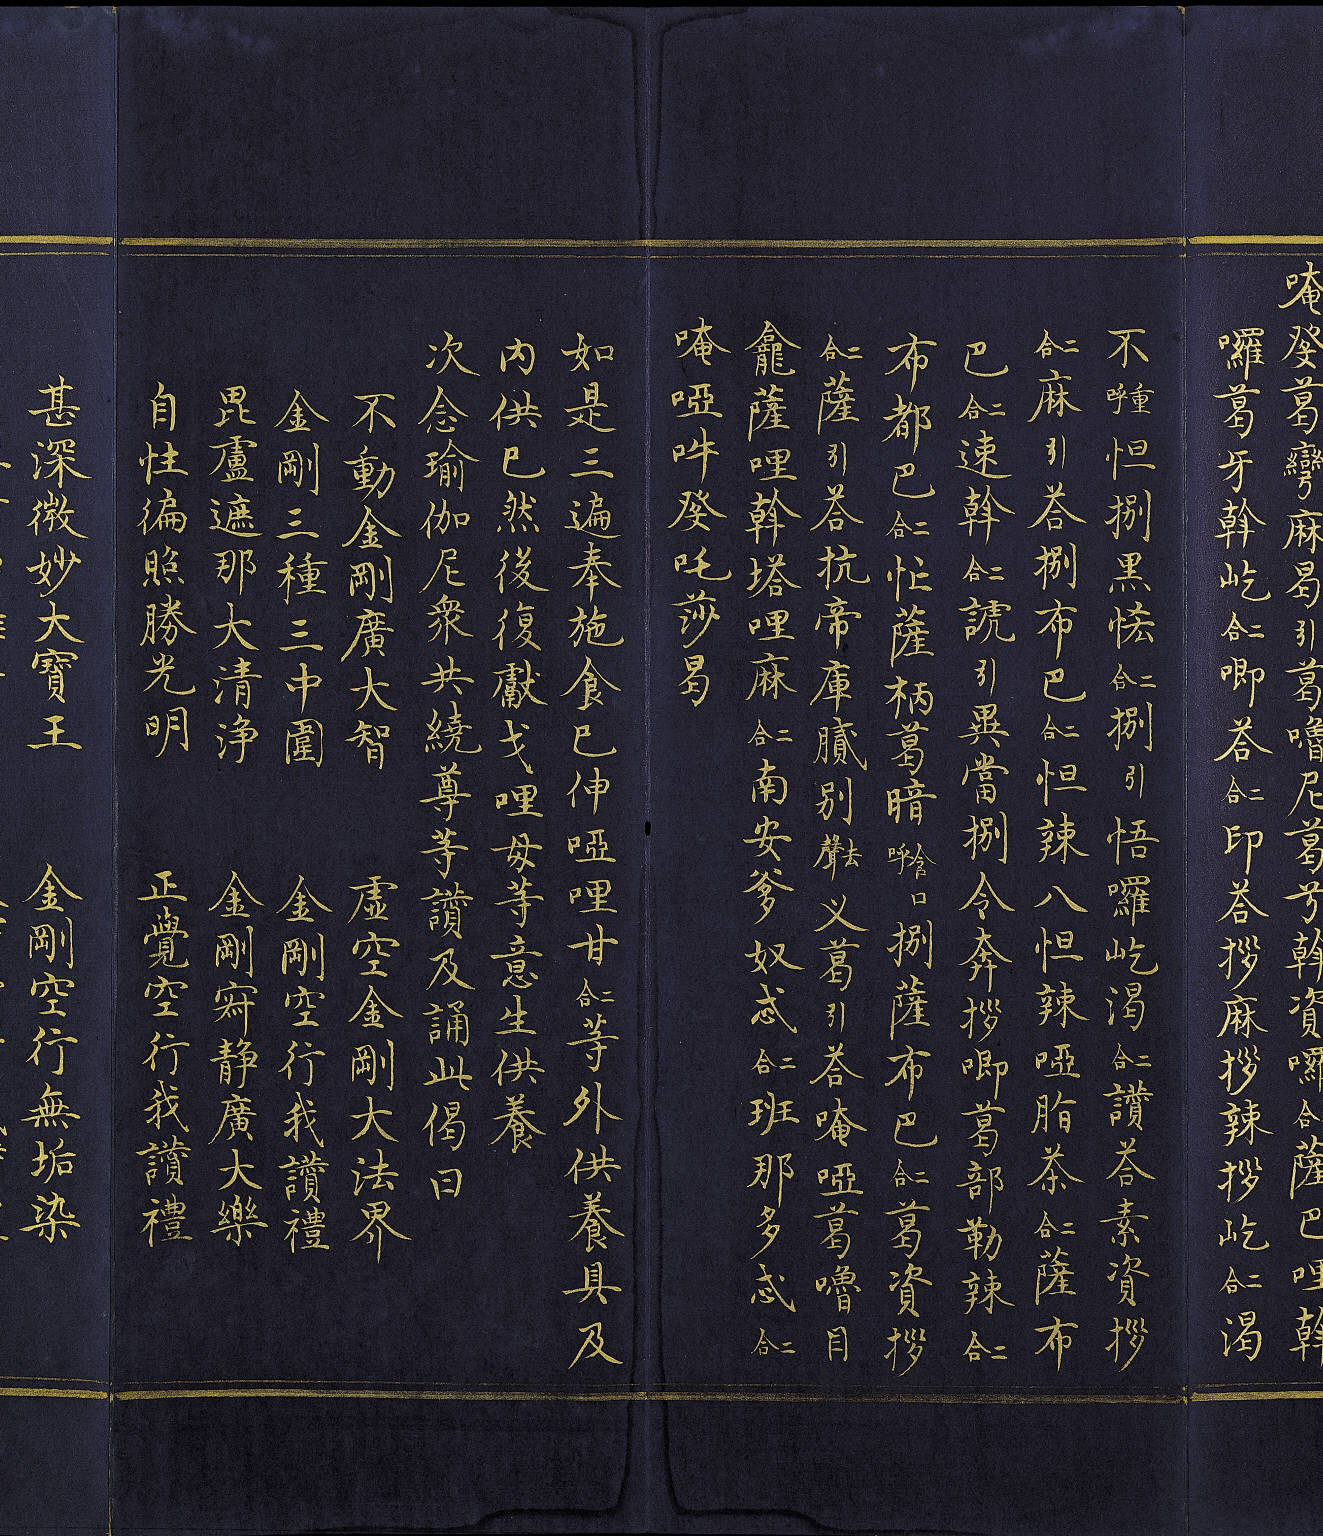 唵癹葛彎麻曷引葛嚕尼葛兮斡資囉二合薩巴哩斡
囉葛牙斡屹二合唧荅二合印荅拶麻拶辣拶屹二合渴
不重呼怛捌黑㤿二合捌引悟囉屹渴二合讚荅素資拶
二合麻引荅捌布巴二合怛辣八怛辣啞脂荼二合薩布
巴二合速斡二合謊引異當捌令奔拶唧葛部勒辣二合
布都巴二合忙薩柄葛暗含口呼捌薩布巴二合葛資拶
二合薩引荅抗帝庫膩別去聲义葛引荅唵啞葛嚕目
龕薩哩斡塔哩麻二合南安爹奴忒二合班那多忒二合
唵啞吽癹吒莎曷
如是三遍奉施食已伸啞哩甘二合等外供養具及
內供已然後復獻戈哩母等意生供養
次念瑜伽尼衆共繞尊等讚及誦此偈曰
不動金剛廣大智　虛空金剛大法界
金剛三種三中圍　金剛空行我讚禮
毘盧遮那大清淨　金剛寂靜廣大樂
自性徧照勝光明　正覺空行我讚禮
甚深微妙大寶王　金剛空行無垢染